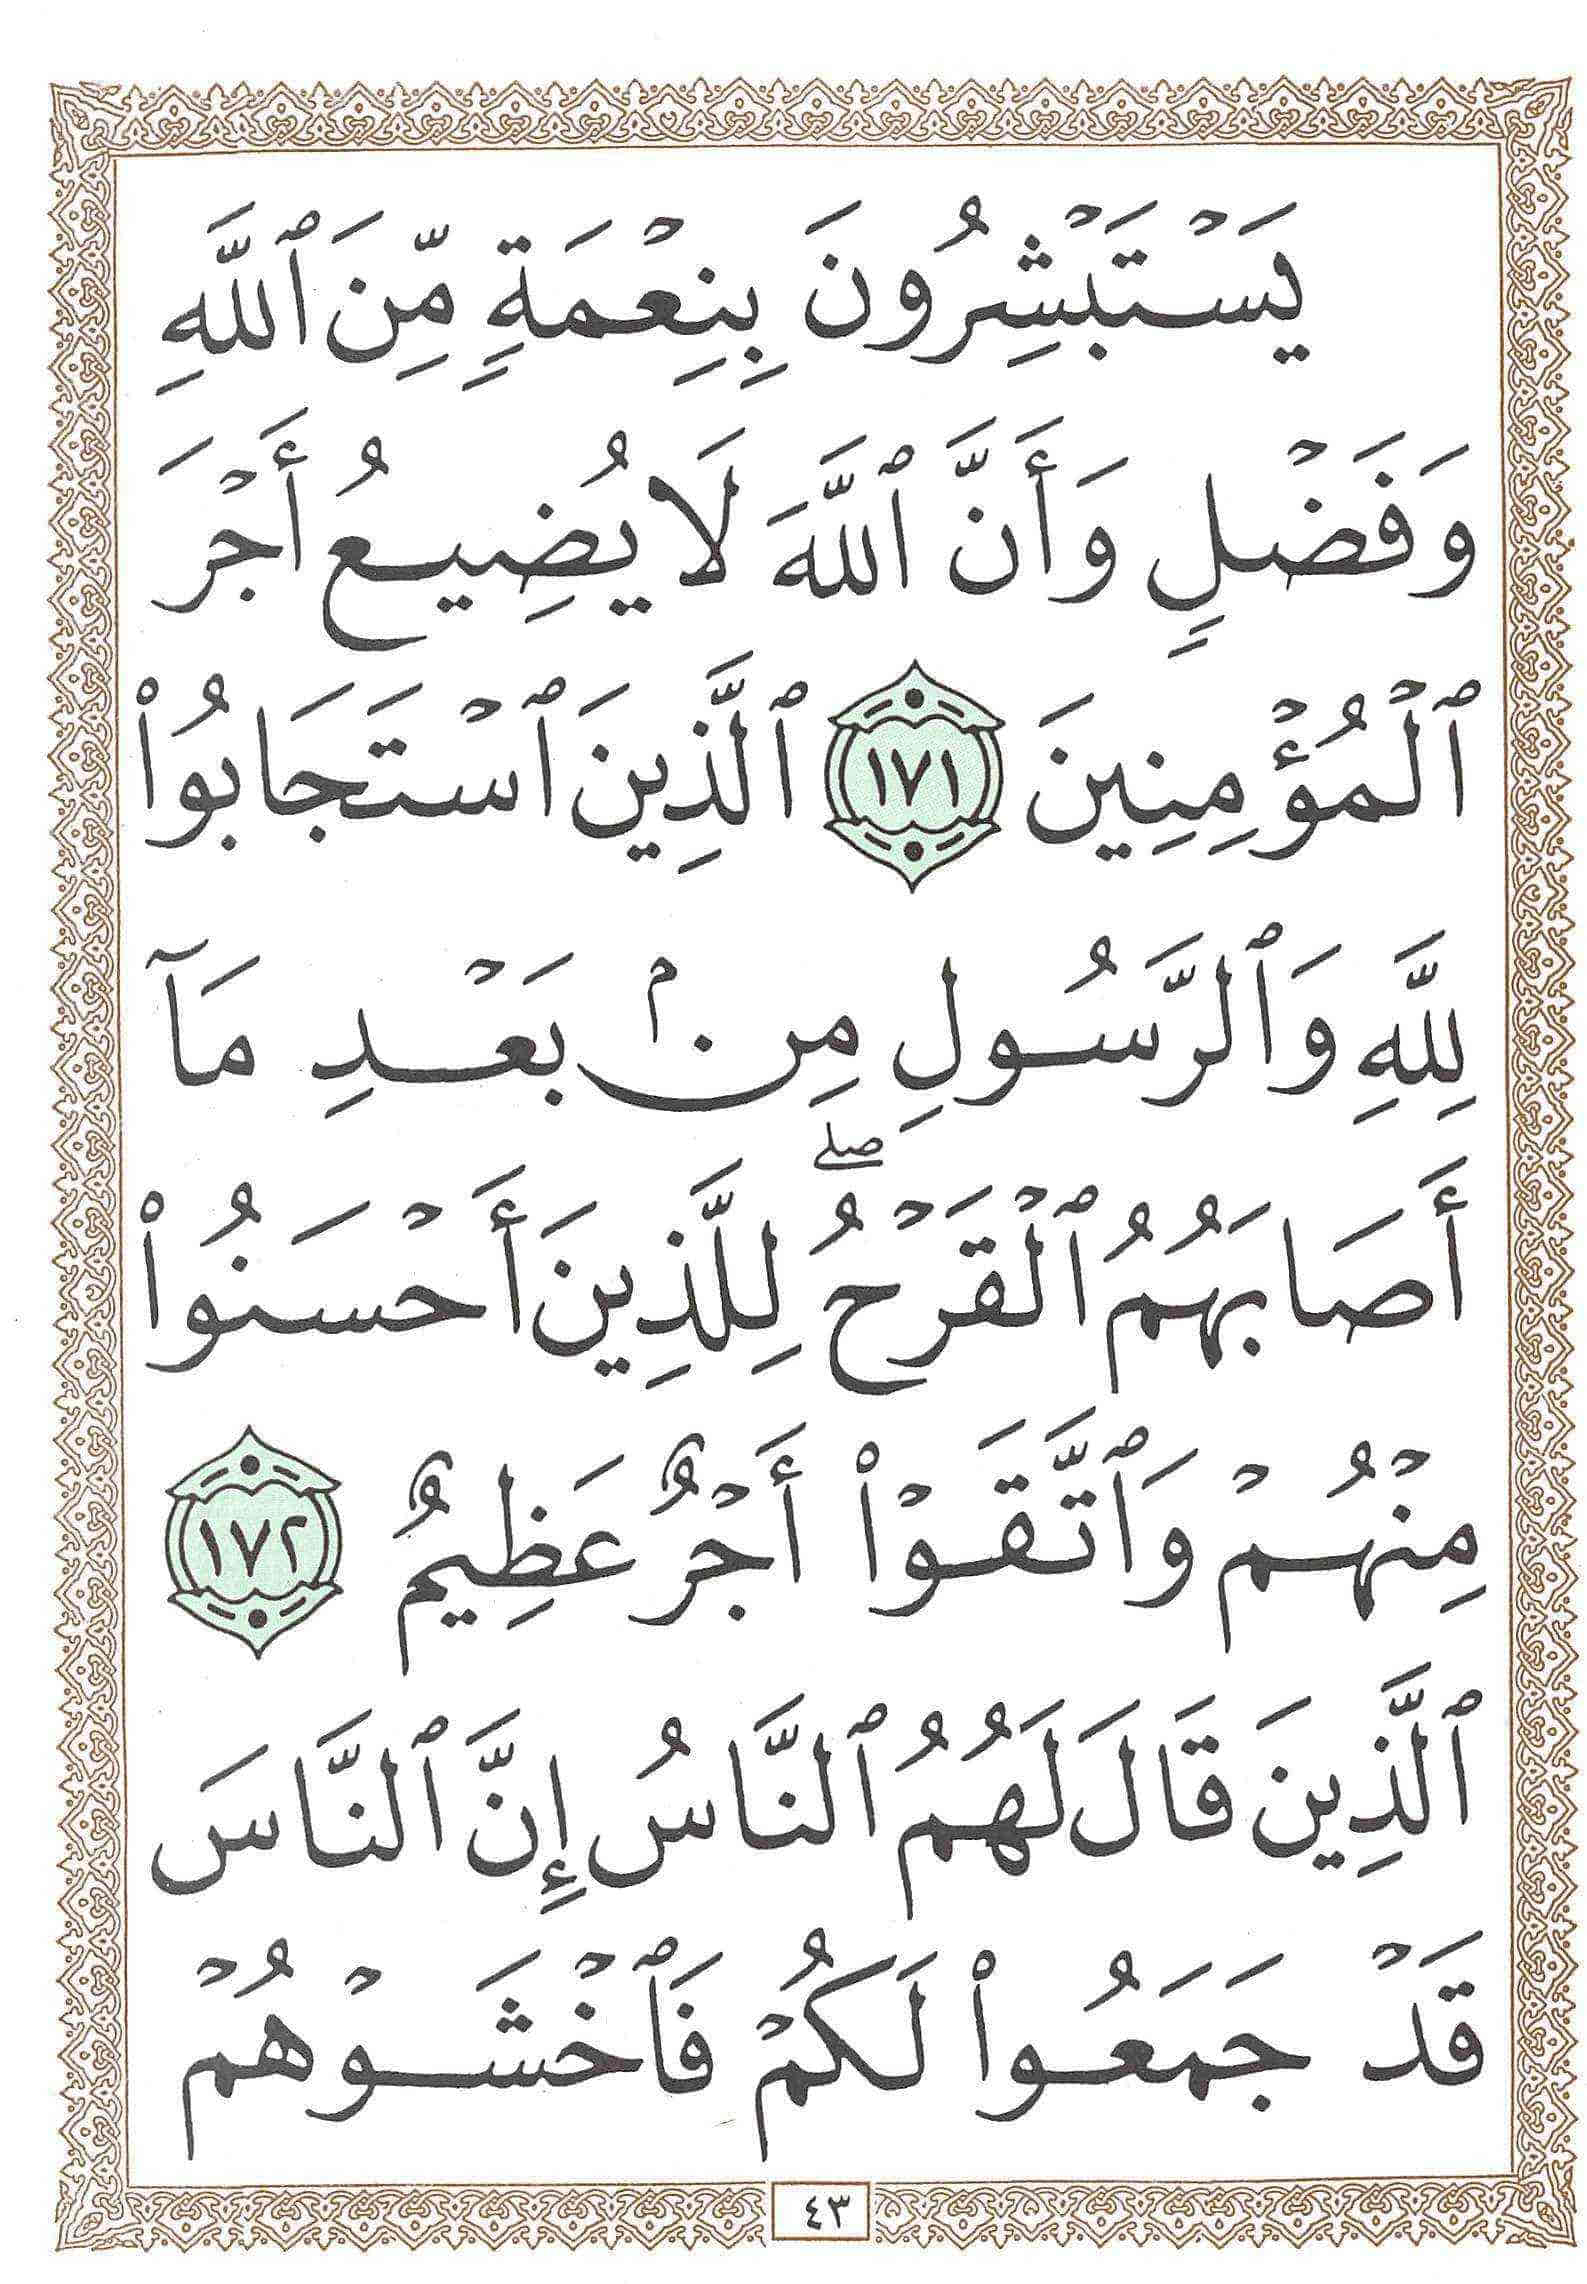 يَسۡتَبۡشِرُونَ بِنِعۡمَةٖ مِّنَ ٱللَّهِ
وَفَضۡلٖ وَأَنَّ ٱللَّهَ لَا يُضِيعُ أَجۡرَ
ٱلۡمُؤۡمِنِينَ ١٧١ ٱلَّذِينَ ٱسۡتَجَابُواْ
لِلَّهِ وَٱلرَّسُولِ مِنۢ بَعۡدِ مَآ
أَصَابَهُمُ ٱلۡقَرۡحُۖ لِلَّذِينَ أَحۡسَنُواْ
مِنۡهُمۡ وَٱتَّقَوۡاْ أَجۡرٌ عَظِيمٌ ١٧٢
ٱلَّذِينَ قَالَ لَهُمُ ٱلنَّاسُ إِنَّ ٱلنَّاسَ
قَدۡ جَمَعُواْ لَكُمۡ فَٱخۡشَوۡهُمۡ
٤٣